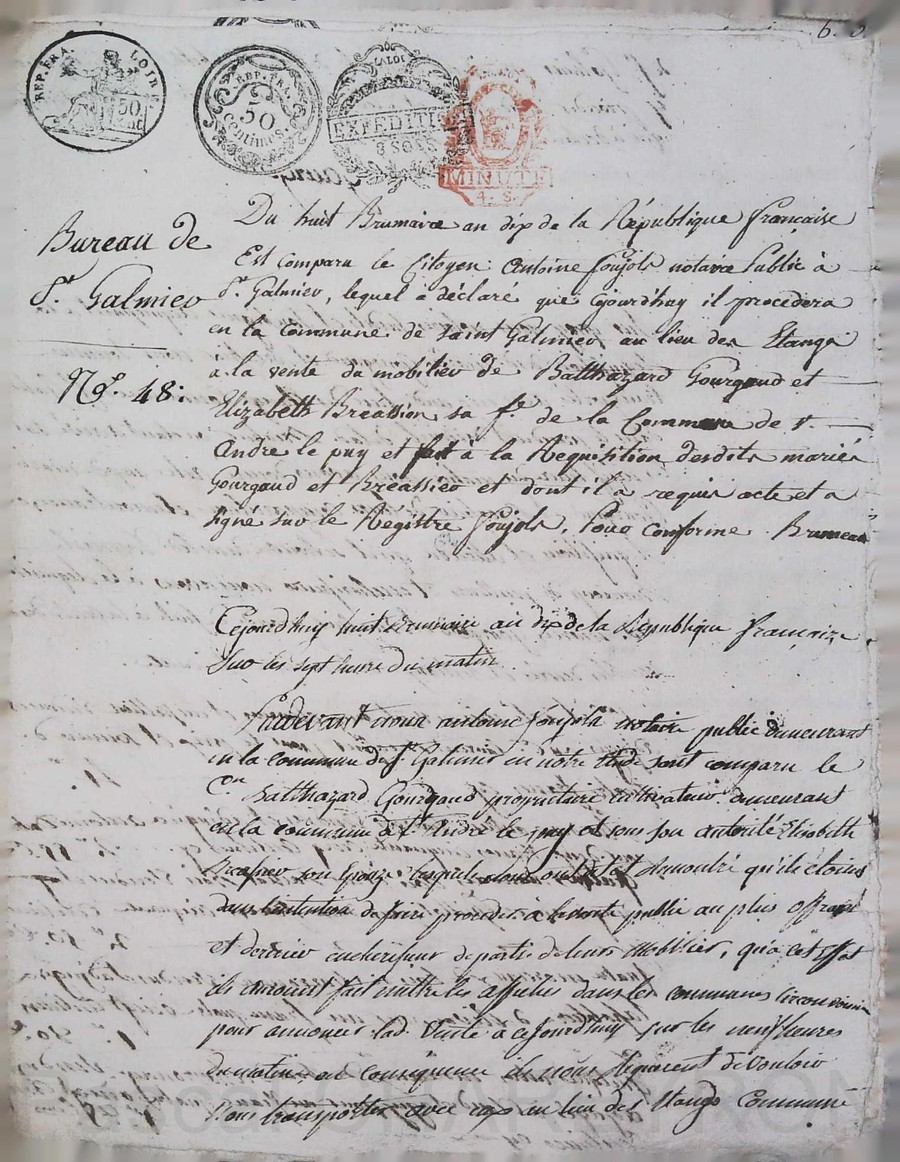 REP. FRA. LOIRE
50
cent
REP. FRA.
50
centimes.
LA LOI
EXPEDITI
8 SOLS
MINUTE
4. S.
Bureau de
St. Galmier
No. 48:
Du huit Brumaire an dix de la République française
Est comparu le Citoyen Antoine Soujols notaire Public à
St. Galmier, lequel a déclaré que Cejourd'huy il procedera
en la Commune de Saint Galmier au lieu des Etangs
à la vente du mobilier de Balthazard Gourgaud et
Elizabeth Breassier sa fe. de la Commune de St.
André le puy et fait à la Requisition desdits mariés
Gourgaud et Bréassier et dont il a requis acte et a
signé sur le Régistre Soujols, Pour Conforme
Cejourd'huy huit Brumaire an dix de la République française
Sur les sept heure du matin
Pardevant nous antoine Soujols notaire public demeurant
en la commune de St. Galmier en notre étude sont comparu le
Cen Balthazard Gourgaud proprietaire cultivateur demeurant
en la commune de St. André le puy et sous son autorité Elisabeth
Breassier son Epouze lesquels nous ont démontré qu'ils étoient
dans l'intention de faire proceder à la vente public au plus offrant
et dernier encherisseur de partie de leurs mobilier, qu'a cet effet
ils auroient fait mettre les affiches dans les communes circonvoisine
pour annoncer lad. Vente à cejourd'huy sur les neuf heures
du matin en consequence ils nous Requierent de vouloir
Nous transporter avec eux au lieu des Etangs Commune